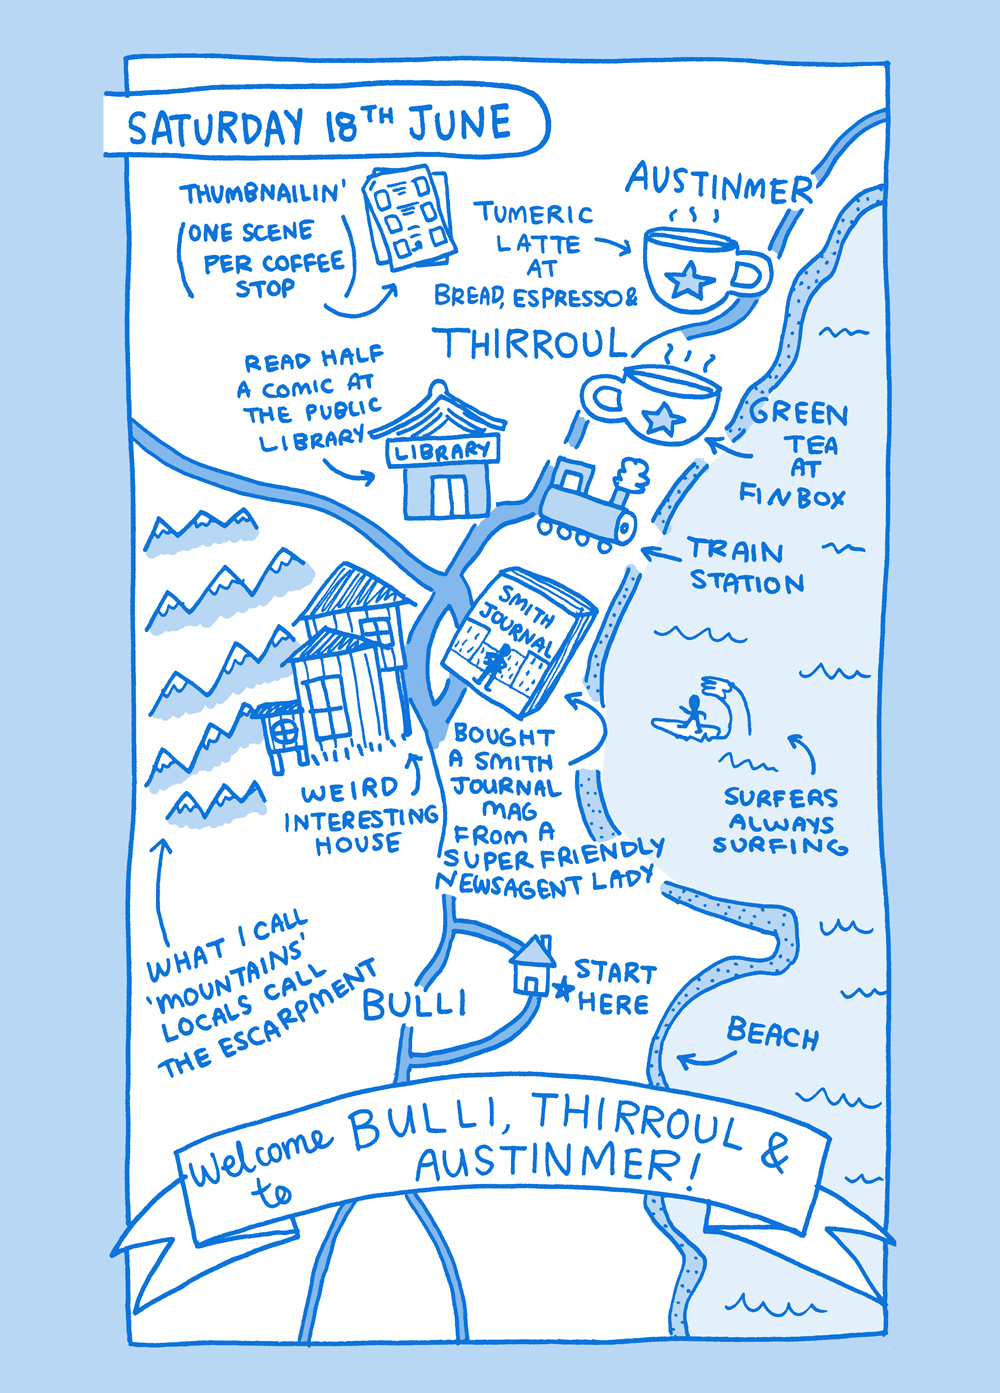 SATURDAY 18TH JUNE
THUMBNAILIN'
(ONE SCENE
PER COFFEE
STOP)
AUSTINMER
TUMERIC
LATTE
AT
BREAD, ESPRESSO &
THIRROUL
READ HALF
A COMIC AT
THE PUBLIC
LIBRARY
LIBRARY
GREEN
TEA
AT
FINBOX
TRAIN
STATION
SMITH
JOURNAL
BOUGHT
A SMITH
JOURNAL
MAG
FROM A
SUPER FRIENDLY
NEWSAGENT LADY
WEIRD
INTERESTING
HOUSE
SURFERS
ALWAYS
SURFING
WHAT I CALL
'MOUNTAINS'
LOCALS CALL
THE ESCARPMENT
BULLI
START
HERE
BEACH
Welcome
to
BULLI, THIRROUL &
AUSTINMER!